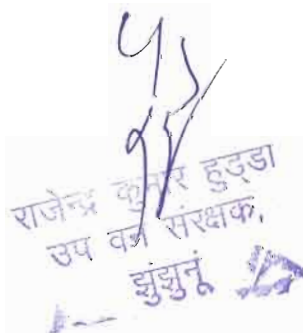 राजेन्द्र कुमार हुड्डा
उप वन संरक्षक,
झुझुनूं